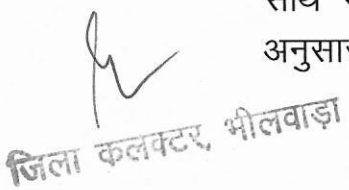 साथ
अनुसार
जिला कलक्टर, भीलवाड़ा